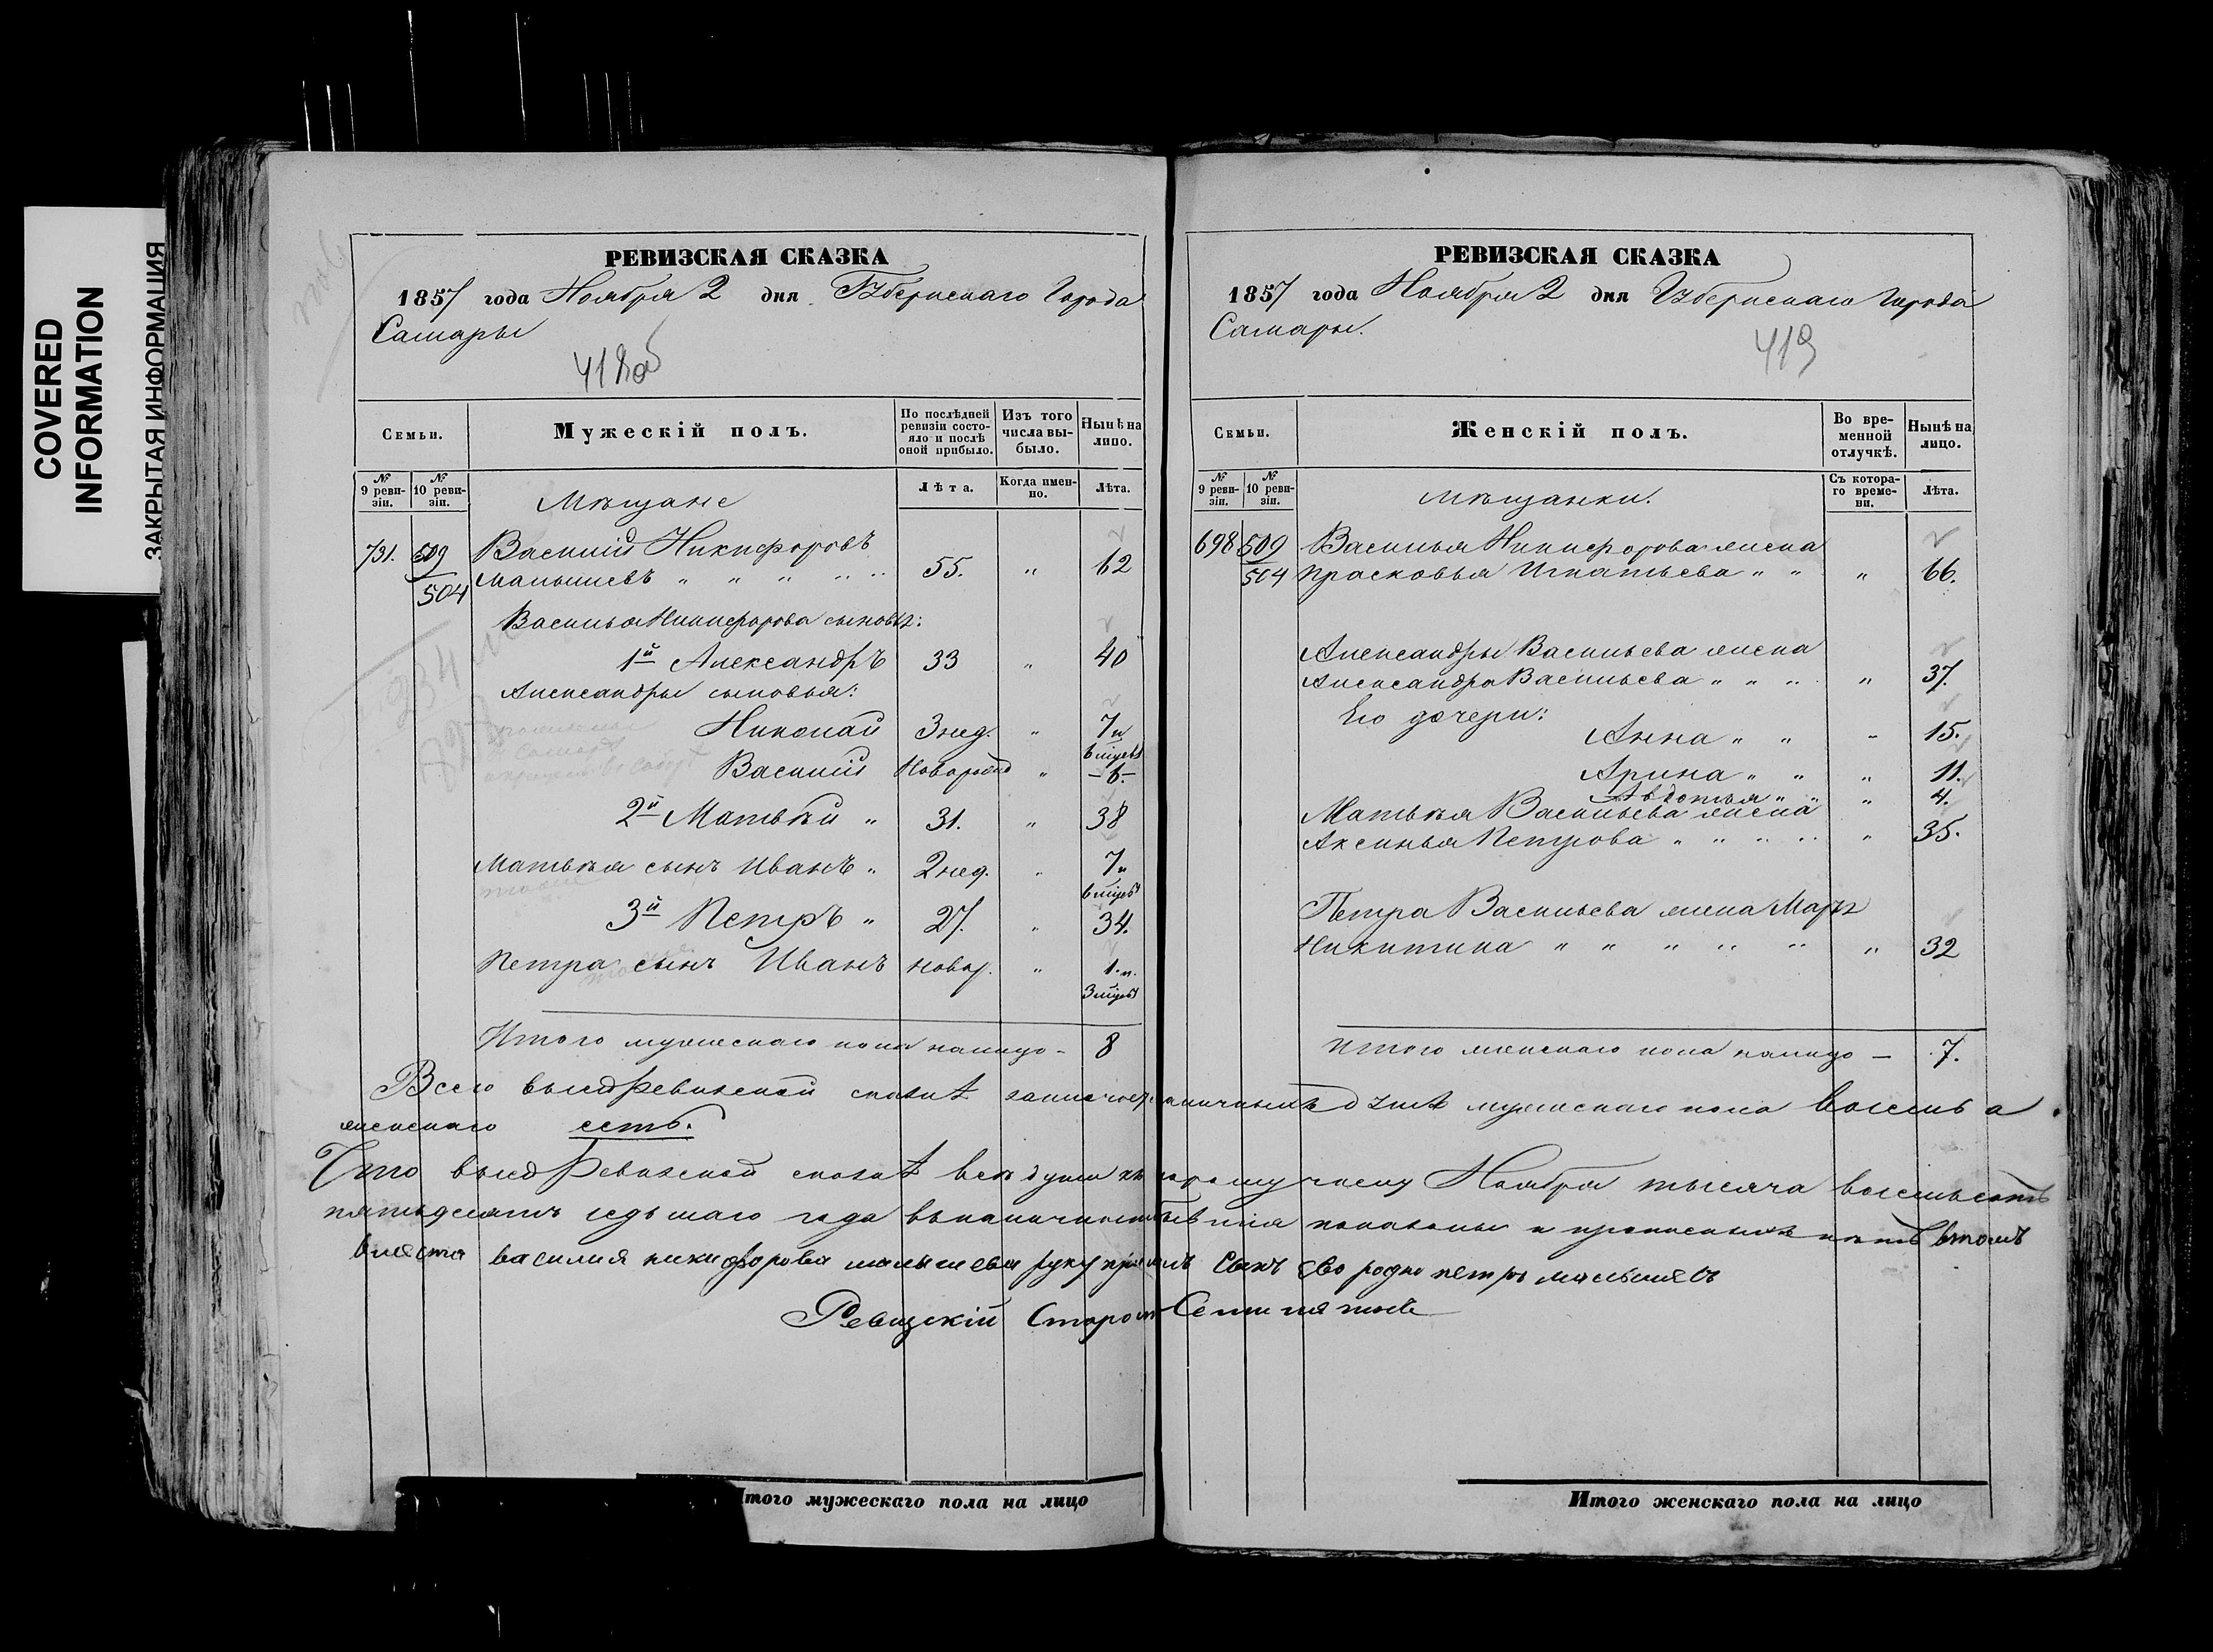 COVERED
INFORMATION
ЗАКРЫТАЯ ИНФОРМАЦИЯ
РЕВИЗСКАЯ СКАЗКА
1857 года Ноября 2 дня Губернскаго Города
Самары
418об
Семьи.
Мужескій полъ.
По послѣдней ревизіи состояло и послѣ оной прибыло.
Изъ того числа выбыло.
Нынѣ на лицо.
№ 9 ревизіи.
№ 10 ревизіи.
Лѣта.
Когда именно.
Лѣта.
Мѣщане
731. 509 Василий Никифоровъ
504 Малышевъ " " " " " 55. " 62
Василья Никифорова сыновья:
1й Александръ 33 " 40
Александры сыновья:
Николай 3 нед. " 7 и
6 мцевъ
Василий Новорожд " - 6 -
2й Матвѣй " 31. " 38
Матвѣя сынъ Иванъ " 2 нед. " 7 и
6 мцевъ
3й Петръ " 27. " 34.
Петра сынъ Иванъ новор. " 1. и.
3 мцевъ
Итого мужескаго пола налицо - 8
РЕВИЗСКАЯ СКАЗКА
1857 года Ноября 2 дня Губернскаго Города
Самары.
419
Семьи.
Женскій полъ.
Во временной отлучкѣ.
Нынѣ на лицо.
№ 9 ревизіи.
№ 10 ревизіи.
Съ котораго времени.
Лѣта.
Мѣщанки.
698 509 Василья Никифорова жена
504 Прасковья Игнатьева " " " 66.
Александры Васильева жена
Александра Васильева " " " " 37.
Его дочери:
Анна " " " 15.
Арина " " " 11.
Авдотья " " " 4.
Матвѣя Васильева жена
Аксинья Петрова " " " " " 35.
Петра Васильева жена
Никитина " " " " " " 32
Итого женскаго пола налицо — 7.
Всего въ сей Ревизской сказкѣ наличныхъ душъ мужескаго пола восемь а
женскаго семь.
Что въ сей Ревизской сказкѣ всѣ души къ второму числу Ноября тысяча восемьсотъ
пятьдесятъ седьмаго года въ наличности показаны и прописныхъ нѣтъ втомъ
вместа василия никифорова малышева руку сынъ ево родно петръ малышевъ
Ревизскій
Итого мужескаго пола на лицо
Итого женскаго пола на лицо